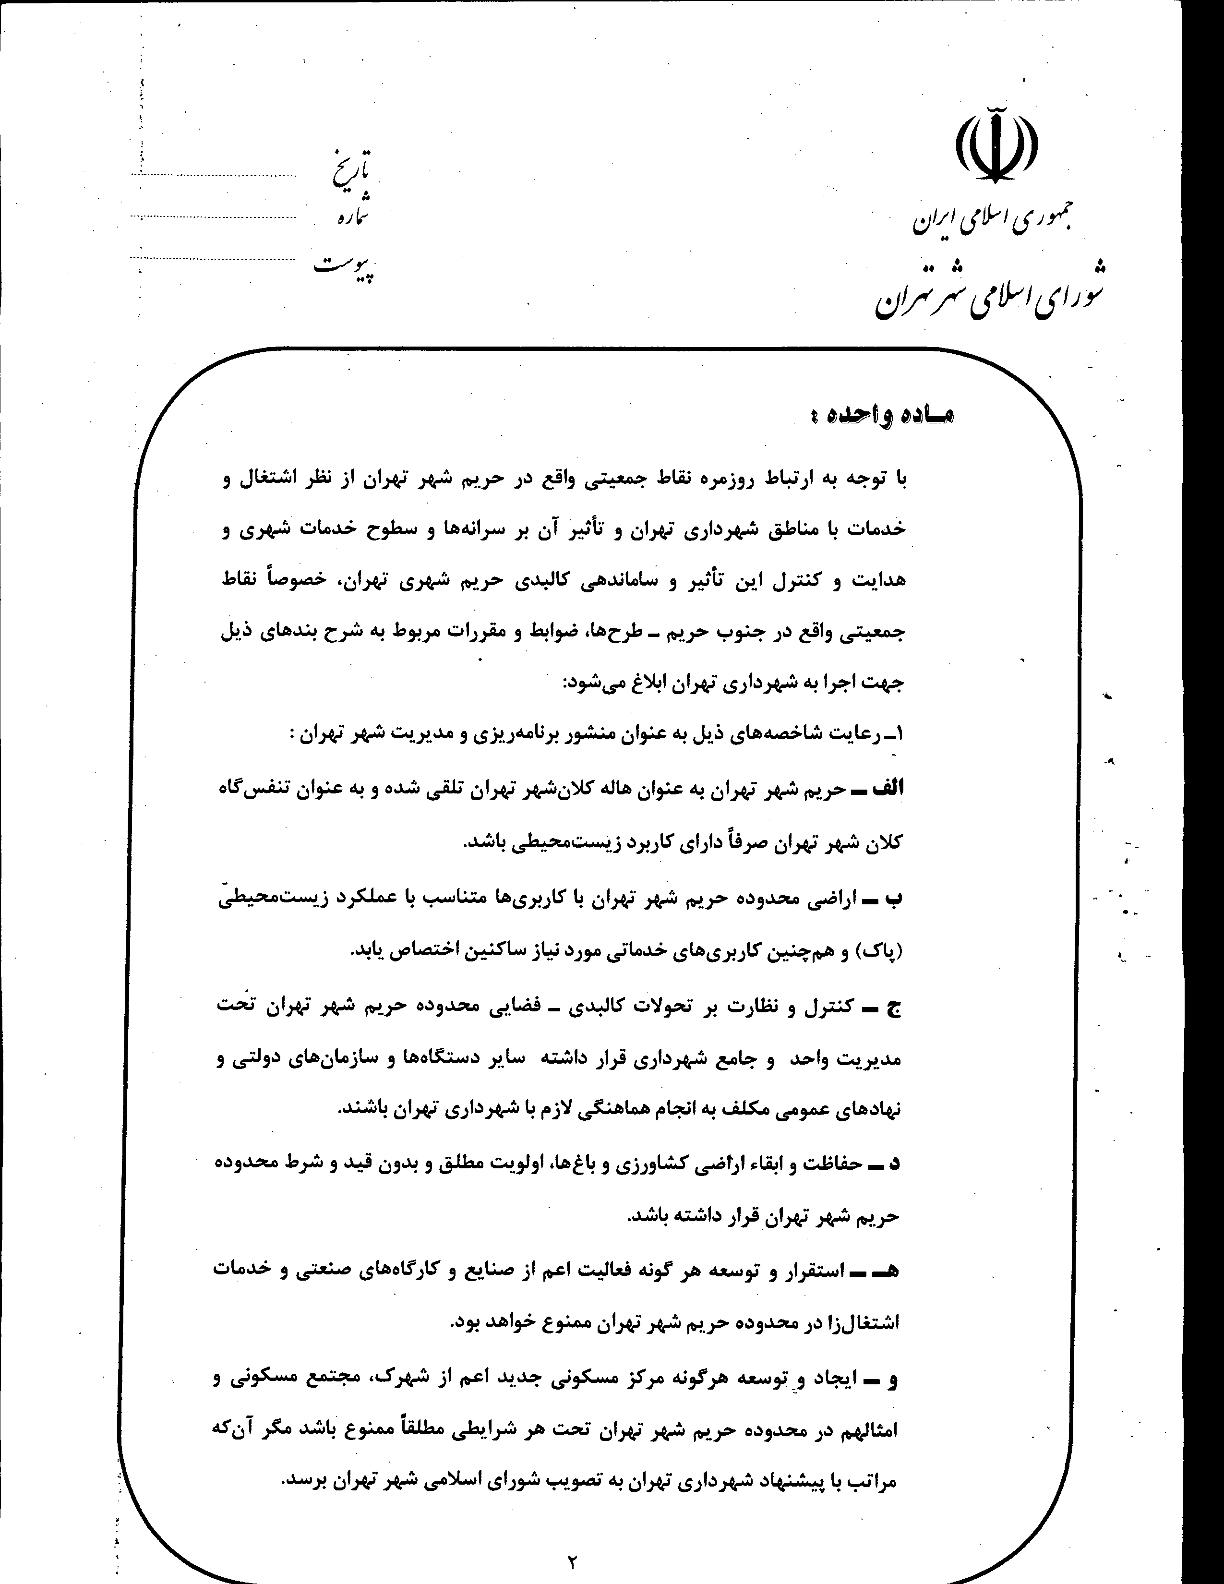 جمهوری اسلامی ایران
شورای اسلامی شهر تهران
تاریخ
شماره
پیوست
ماده واحده :
با توجه به ارتباط روزمره نقاط جمعیتی واقع در حریم شهر تهران از نظر اشتغال و
خدمات با مناطق شهرداری تهران و تأثیر آن بر سرانه‌ها و سطوح خدمات شهری و
هدایت و کنترل این تأثیر و ساماندهی کالبدی حریم شهری تهران، خصوصاً نقاط
جمعیتی واقع در جنوب حریم ـ طرح‌ها، ضوابط و مقررات مربوط به شرح بندهای ذیل
جهت اجرا به شهرداری تهران ابلاغ می‌شود:
۱ـ رعایت شاخصه‌های ذیل به عنوان منشور برنامه‌ریزی و مدیریت شهر تهران :
الف ـ حریم شهر تهران به عنوان هاله کلان‌شهر تهران تلقی شده و به عنوان تنفس‌گاه
کلان شهر تهران صرفاً دارای کاربرد زیست‌محیطی باشد.
ب ـ اراضی محدوده حریم شهر تهران با کاربری‌ها متناسب با عملکرد زیست‌محیطی
(پاک) و هم‌چنین کاربری‌های خدماتی مورد نیاز ساکنین اختصاص یابد.
ج ـ کنترل و نظارت بر تحولات کالبدی ـ فضایی محدوده حریم شهر تهران تحت
مدیریت واحد و جامع شهرداری قرار داشته سایر دستگاه‌ها و سازمان‌های دولتی و
نهادهای عمومی مکلف به انجام هماهنگی لازم با شهرداری تهران باشند.
د ـ حفاظت و ابقاء اراضی کشاورزی و باغ‌ها، اولویت مطلق و بدون قید و شرط محدوده
حریم شهر تهران قرار داشته باشد.
هـ ـ استقرار و توسعه هر گونه فعالیت اعم از صنایع و کارگاه‌های صنعتی و خدمات
اشتغال‌زا در محدوده حریم شهر تهران ممنوع خواهد بود.
و ـ ایجاد و توسعه هرگونه مرکز مسکونی جدید اعم از شهرک، مجتمع مسکونی و
امثالهم در محدوده حریم شهر تهران تحت هر شرایطی مطلقاً ممنوع باشد مگر آن‌که
مراتب با پیشنهاد شهرداری تهران به تصویب شورای اسلامی شهر تهران برسد.
۲